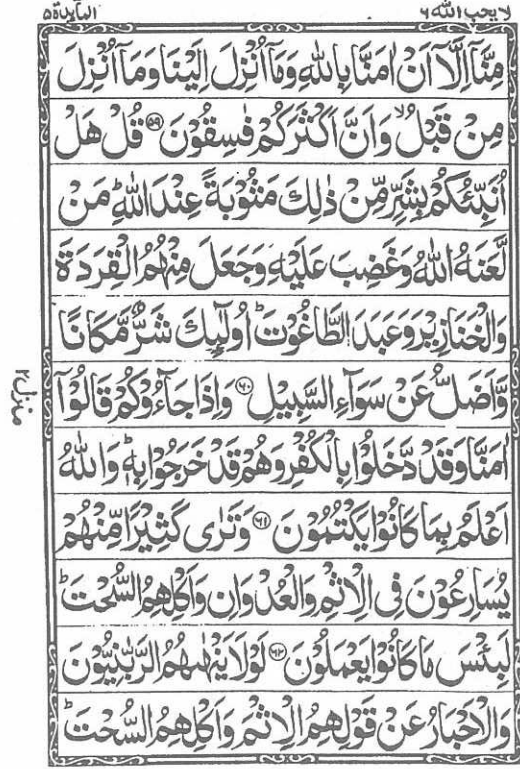 لايحب الله ٦
المآئدة ٥
مِنَّاۤ اِلَّاۤ اَنْ اٰمَنَّا بِاللّٰهِ وَمَاۤ اُنْزِلَ اِلَيْنَا وَمَاۤ اُنْزِلَ
مِنْ قَبْلُ ۙ وَاَنَّ اَكْثَرَكُمْ فٰسِقُوْنَ ﴿۵۹﴾ قُلْ هَلْ
اُنَبِّئُكُمْ بِشَرٍّ مِّنْ ذٰلِكَ مَثُوْبَةً عِنْدَ اللّٰهِ ؕ مَنْ
لَّعَنَهُ اللّٰهُ وَغَضِبَ عَلَيْهِ وَجَعَلَ مِنْهُمُ الْقِرَدَةَ
وَالْخَنَازِيْرَ وَعَبَدَ الطَّاغُوْتَ ؕ اُولٰٓئِكَ شَرٌّ مَّكَانًا
وَّاَضَلُّ عَنْ سَوَآءِ السَّبِيْلِ ﴿۶۰﴾ وَاِذَا جَآءُوْكُمْ قَالُوْۤا
اٰمَنَّا وَقَدْ دَّخَلُوْا بِالْكُفْرِ وَهُمْ قَدْ خَرَجُوْا بِهٖ ؕ وَاللّٰهُ
اَعْلَمُ بِمَا كَانُوْا يَكْتُمُوْنَ ﴿۶۱﴾ وَتَرٰى كَثِيْرًا مِّنْهُمْ
يُسَارِعُوْنَ فِى الْاِثْمِ وَالْعُدْوَانِ وَاَكْلِهِمُ السُّحْتَ ؕ
لَبِئْسَ مَا كَانُوْا يَعْمَلُوْنَ ﴿۶۲﴾ لَوْلَا يَنْهٰىهُمُ الرَّبّٰنِيُّوْنَ
وَالْاَحْبَارُ عَنْ قَوْلِهِمُ الْاِثْمَ وَاَكْلِهِمُ السُّحْتَ ؕ
منزل ٢